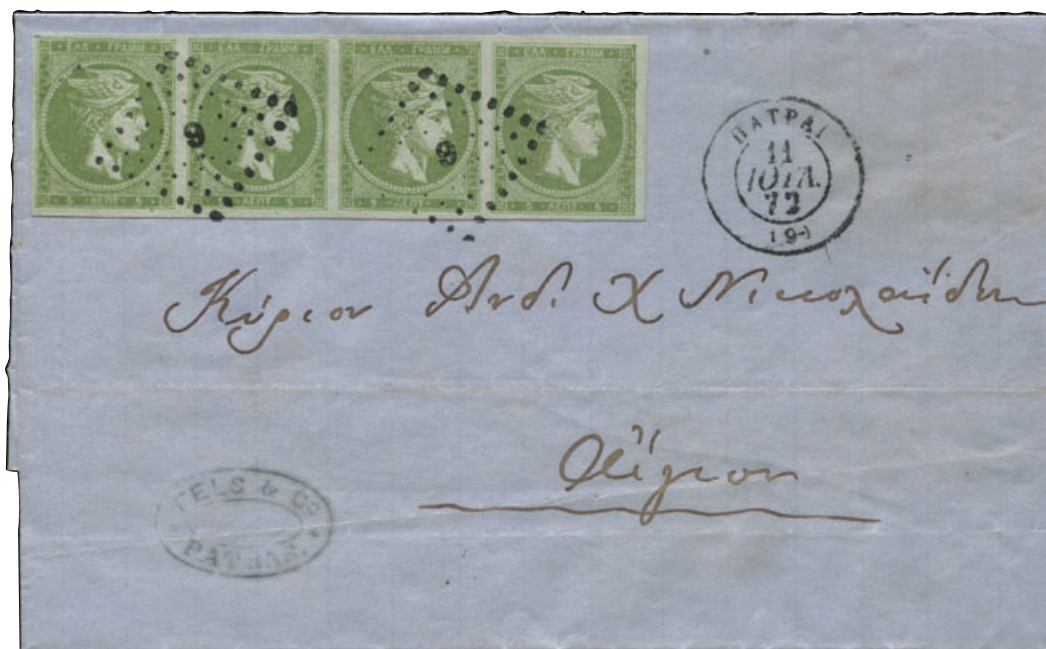 ΕΛΛ · ΓΡΑΜΜ ΕΛΛ · ΓΡΑΜΜ ΕΛΛ · ΓΡΑΜΜ ΕΛΛ · ΓΡΑΜΜ
9 9
5 ΛΕΠΤ 5 5 ΛΕΠΤ 5 5 ΛΕΠΤ 5 5 ΛΕΠΤ 5
ΠΑΤΡΑΙ
11
ΙΟΥΛ.
72
(9)
Κύριον Ανδ. Χ Νικολαΐδην
Αἴγιον
FELS & Co
PATRAS.